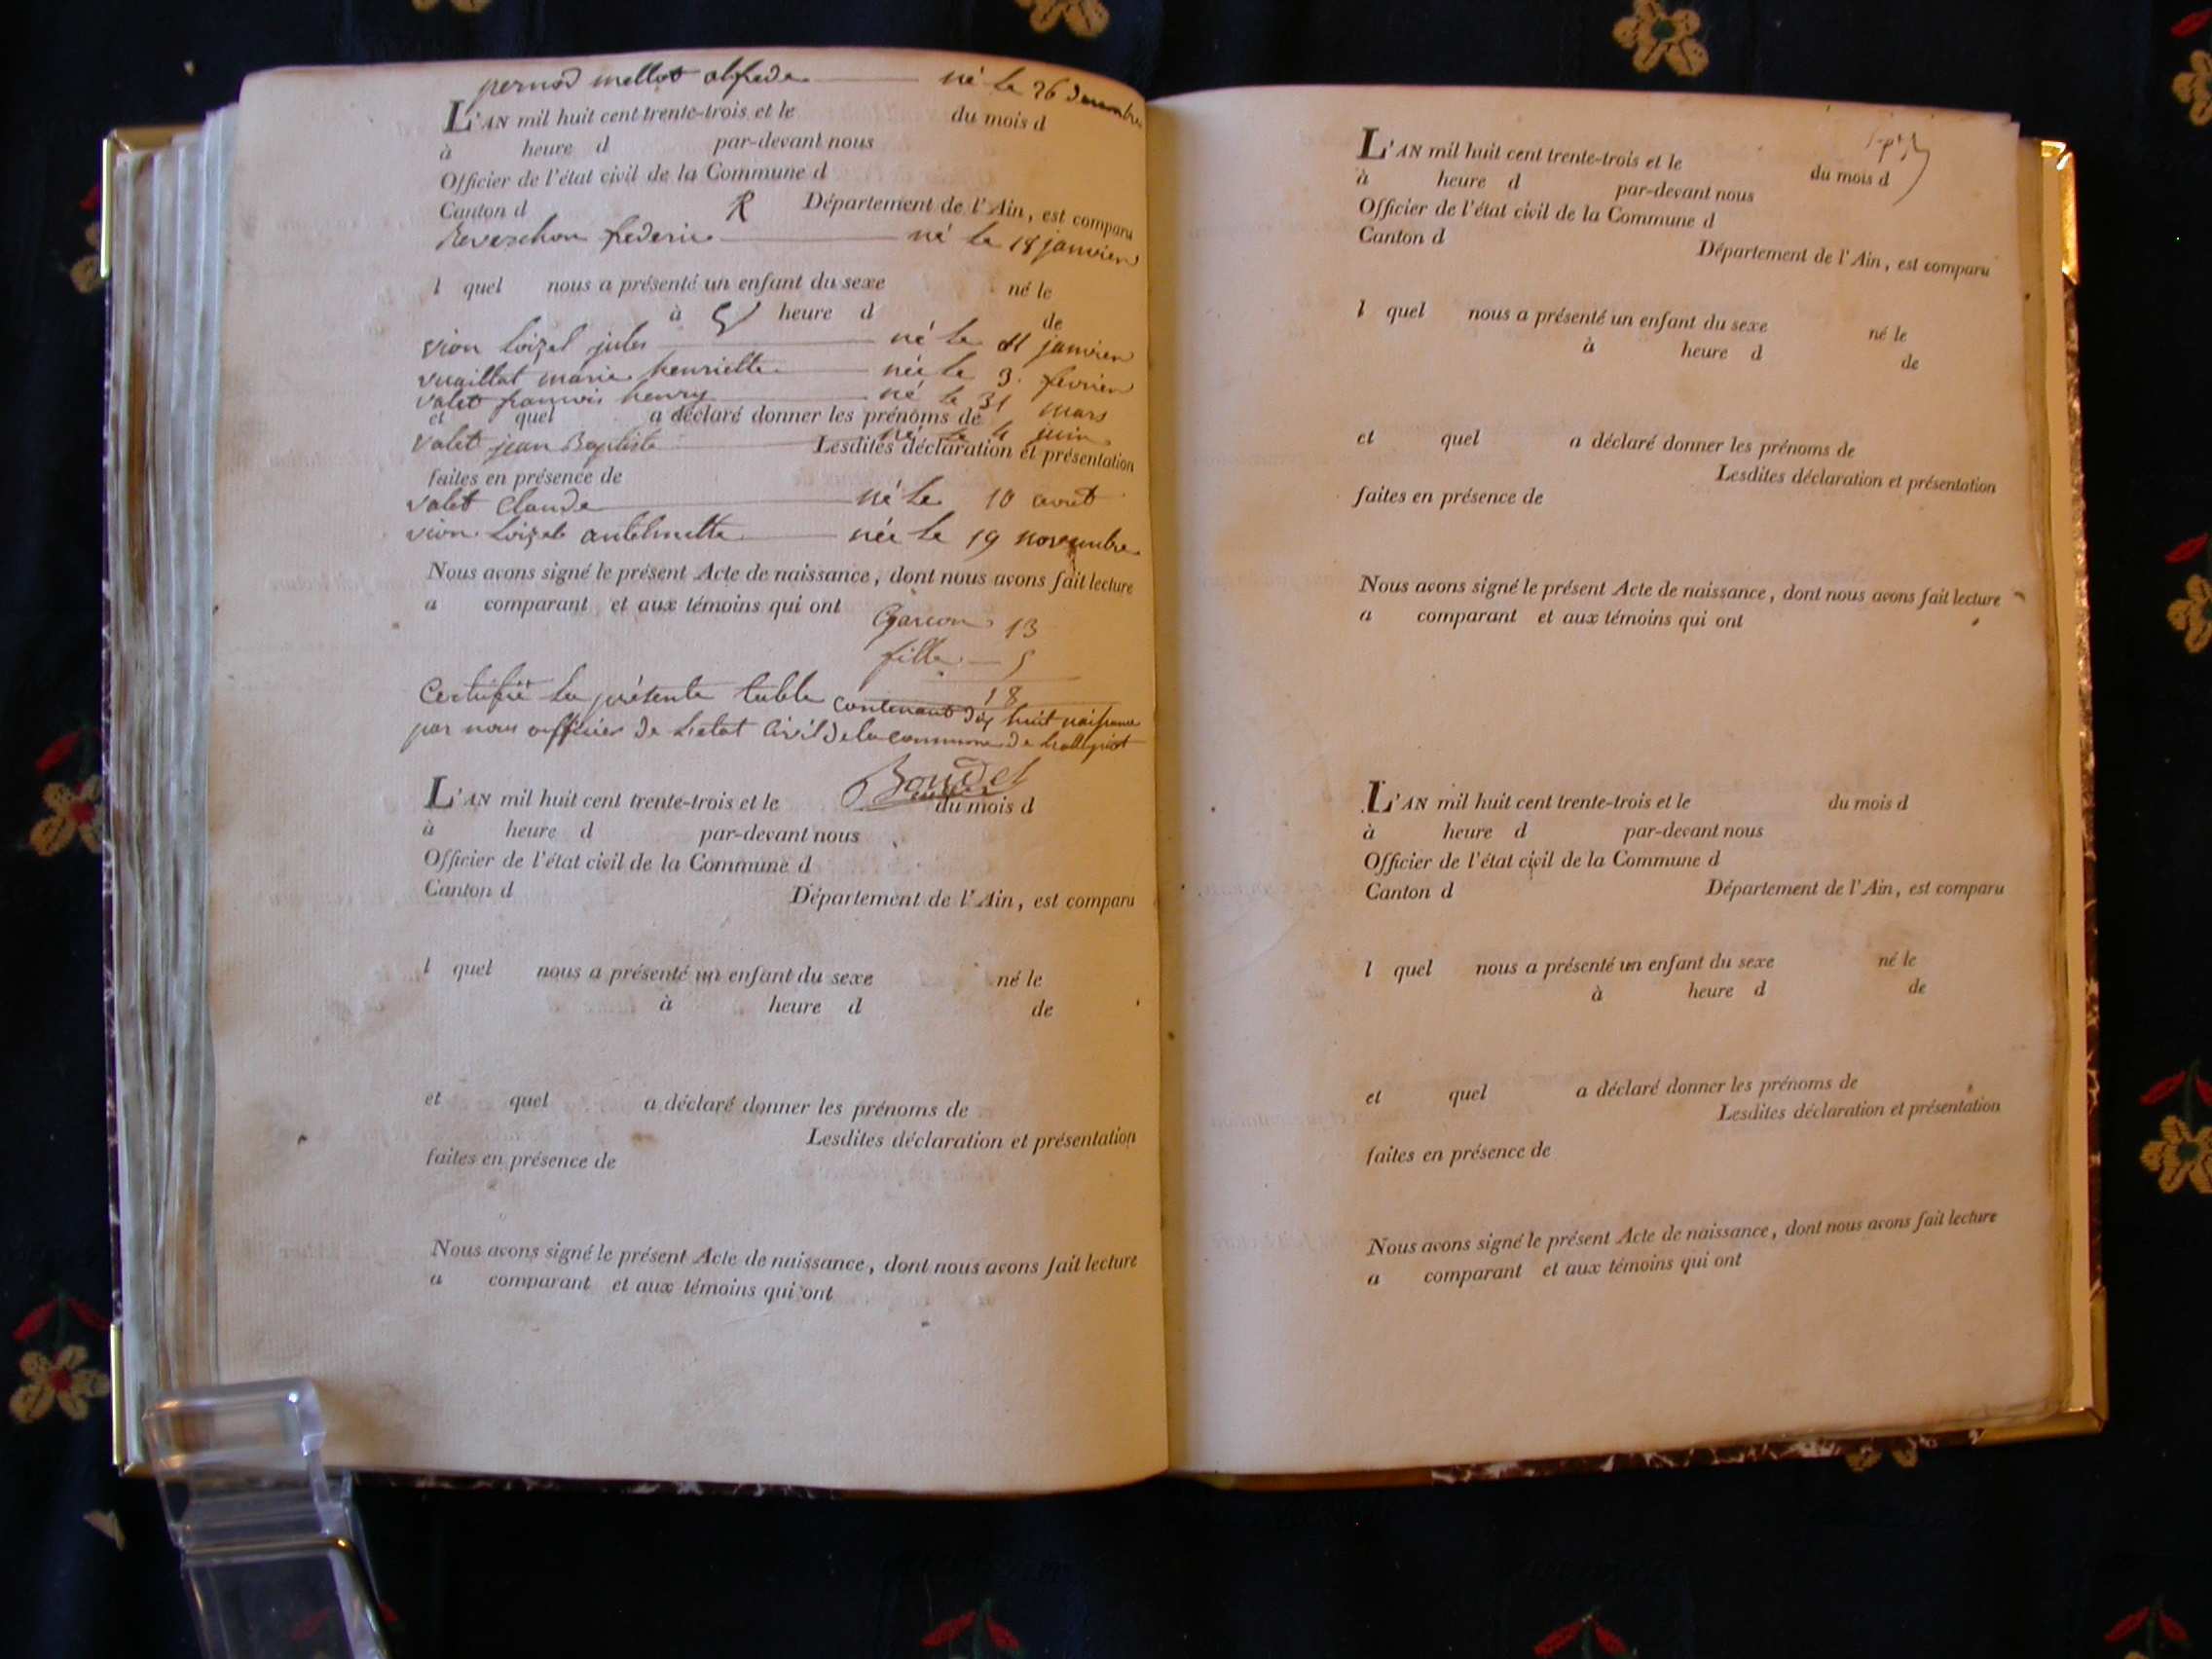 pernod mellet alfrede né le 26 decembre
L'AN mil huit cent trente-trois et le du mois d
à heure d par-devant nous
Officier de l'état civil de la Commune d
Canton d R Département de l'Ain, est comparu
Reverchon frederic né le 18 janvier
l quel nous a présenté un enfant du sexe né le
à heure d de
vion loizel jules né le 11 janvier
vuaillat marie henriette née le 3 fevrier
valet francois henry né le 31 mars
et quel a déclaré donner les prénoms de
valet jean Baptiste né le 4 juin
Lesdites déclaration et présentation
faites en présence de
valet Claude né le 10 avril
vion loizel anthelmette née le 19 novembre
Nous avons signé le présent Acte de naissance, dont nous avons fait lecture
a comparant et aux témoins qui ont
Garcon 13
fille 5
18
Certifié la présente table contenant dix huit naissance
par nous officier de l'etat Civil de la commune de
Boudet
L'AN mil huit cent trente-trois et le du mois d
à heure d par-devant nous
Officier de l'état civil de la Commune d
Canton d Département de l'Ain, est comparu
l quel nous a présenté un enfant du sexe né le
à heure d de
et quel a déclaré donner les prénoms de
Lesdites déclaration et présentation
faites en présence de
Nous avons signé le présent Acte de naissance, dont nous avons fait lecture
a comparant et aux témoins qui ont
L'AN mil huit cent trente-trois et le du mois d
à heure d par-devant nous
Officier de l'état civil de la Commune d
Canton d Département de l'Ain, est comparu
l quel nous a présenté un enfant du sexe né le
à heure d de
et quel a déclaré donner les prénoms de
Lesdites déclaration et présentation
faites en présence de
Nous avons signé le présent Acte de naissance, dont nous avons fait lecture
a comparant et aux témoins qui ont
L'AN mil huit cent trente-trois et le du mois d
à heure d par-devant nous
Officier de l'état civil de la Commune d
Canton d Département de l'Ain, est comparu
l quel nous a présenté un enfant du sexe né le
à heure d de
et quel a déclaré donner les prénoms de
Lesdites déclaration et présentation
faites en présence de
Nous avons signé le présent Acte de naissance, dont nous avons fait lecture
a comparant et aux témoins qui ont